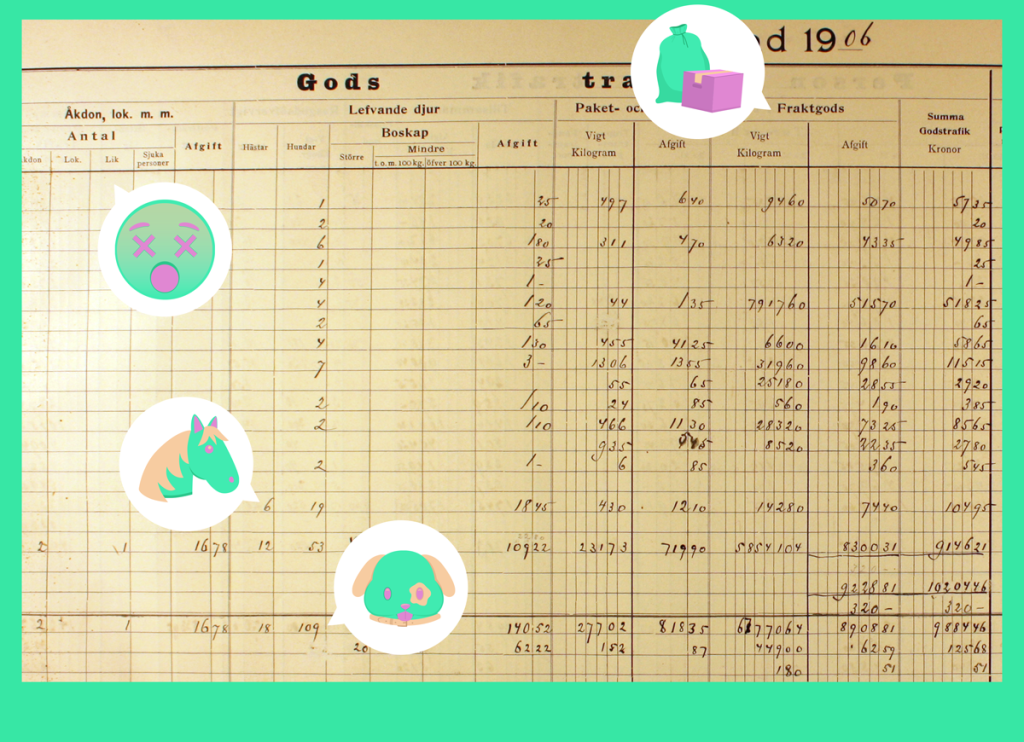 od 1906
Gods tra
Åkdon, lok. m. m. Lefvande djur Paket- oc Fraktgods Summa Godstrafik Kronor
Antal Afgift Hästar Hundar Boskap Afgift Vigt Kilogram Afgift Vigt Kilogram Afgift
kdon Lok. Lik Sjuka personer Större Mindre
t.o.m. 100 kg. öfver 100 kg.
1 25 497 640 9460 5070 5735
2 20 20
6 180 311 470 6320 4335 4985
1 25 25
4 1- 1-
4 120 44 135 791760 51570 51825
2 65 65
4 130 455 4125 6600 1610 5865
7 3- 1306 1355 31960 9860 11515
55 65 25180 2855 2920
2 110 24 85 560 190 385
2 110 466 1130 28320 7325 8565
935 8520 2235 2780
2 1- 6 85 360 545
6 19 1845 430 1210 14280 7440 10495
2 1 1678 12 53 10922 23173 71990 5854104 830031 914621
922881 1020446
320- 320-
2 1 1678 18 109 14052 27702 81835 6777064 890881 988446
20 6222 152 87 44900 6259 12568
180 51 51